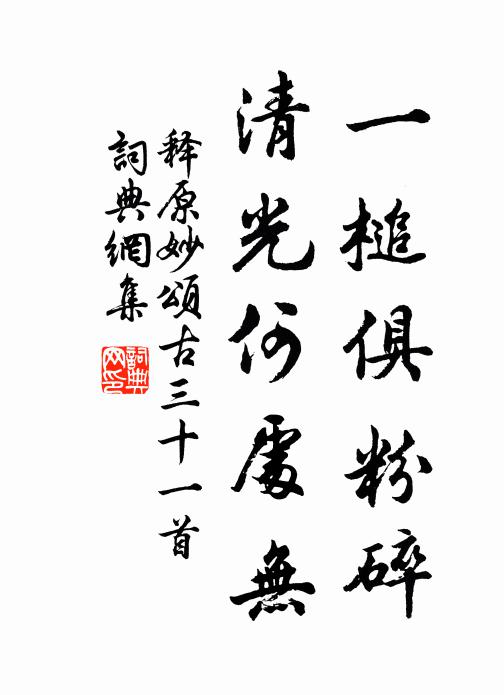 一槌俱粉碎
清光何處無
释原妙頌古三十一首
詞典網集
詞典网印